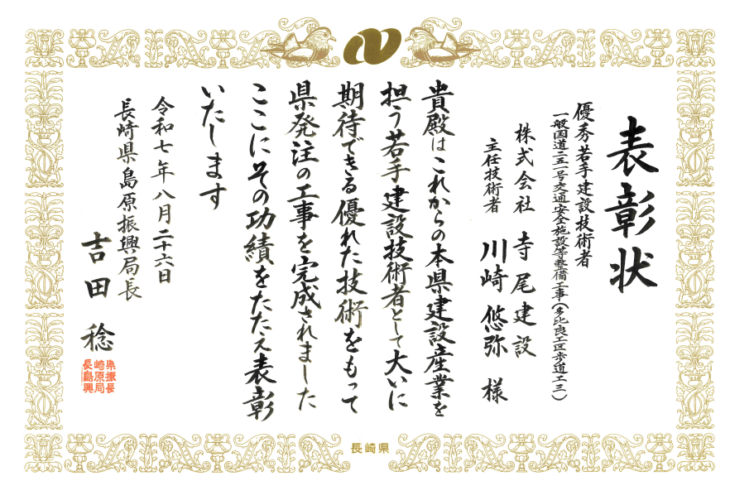 表彰状
優秀若手建設技術者
一般国道二五一号交通安全施設等整備工事(多比良工区歩道工三)
株式会社 寺尾建設
主任技術者 川崎 悠弥 様
貴殿はこれからの本県建設産業を
担う若手建設技術者として大いに
期待できる優れた技術をもって
県発注の工事を完成されました
ここにその功績をたたえ表彰
いたします
令和七年八月二十六日
長崎県島原振興局長
吉田 稔
長崎県